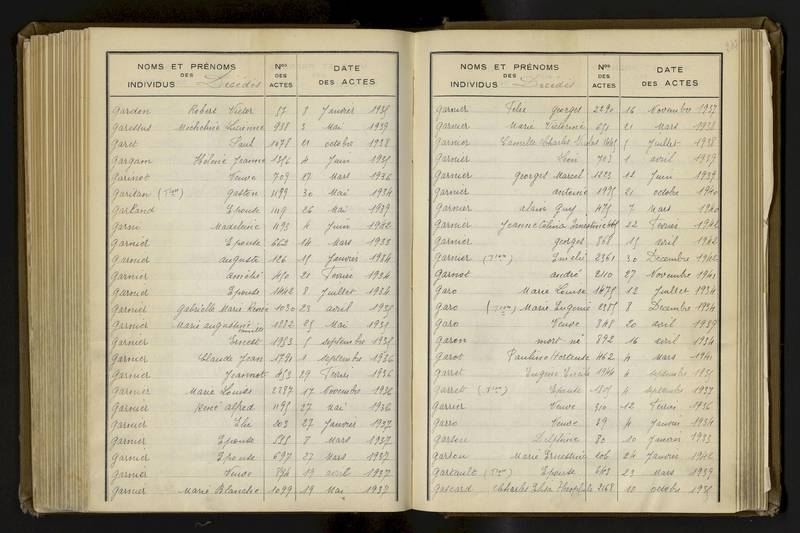 NOMS ET PRÉNOMS DES INDIVIDUS Décédés Nos DES ACTES DATE DES ACTES
Garden Robert Victor 57 8 Janvier 1935
Micheline Lucienne 938 3 Mai 1939
Garet Paul 1678 21 octobre 1938
Gargam Hélène Jeanne 4 Juin
Garinot Veuve 709 27 Mars 1936
gaston 1199 30 Mai 1934
Garland Epouse 1119 26 Mai 1939
Garni Madeleine 1193 4 Juin 1942
Garnier Epouse 662 14 Mars 1933
Garnier auguste 126 15 Janvier 1934
Garnier 450 21 Février 1934
Garnier Epouse 1442 8 Juillet 1934
Garnier Gabrielle Marie Renée 1030 23 avril 1935
Garnier Marie augustine 1282 25 Mai
Garnier Ernest 1953 5 septembre 1935
Garnier Claude Jean 1791 1 septembre 1936
Garnier Jeannot 453 29 Février 1936
Garnier Marie Louise 2287 17 Novembre 1936
Garnier René alfred 1195 27 Mai 1936
Garnier Elie 203 27 Janvier 1937
Garnier Epouse 8 Mars 1937
Garnier Epouse 697 27 Mars 1937
Garnier Veuve 894 19 avril 1937
Garnier Marie Blanche 1099 19 Mai 1937
NOMS ET PRÉNOMS DES INDIVIDUS Décédés Nos DES ACTES DATE DES ACTES
Garnier Félix Georges 2290 16 Novembre 1937
Garnier Marie 651 21 Mars 1938
Garnier Camille Charles 5 Juillet 1938
Garnier 703 1 avril 1939
Garnier Georges Marcel 1223 12 Juin 1939
Garnier antoine 21 octobre 1940
Garnier alain Guy 475 7 Mars 1940
Garnier Jeanne 22 Février 1942
Garnier Georges 868 15 avril 1942
Garnier 2361 30 Décembre 1942
Garnot andré 2110 27 Novembre 1941
Garo Marie Louise 1475 12 Juillet 1934
Garo Marie Eugénie 8 Décembre 1934
Garo Veuve 848 20 avril 1939
Garon mort né 892 16 avril 1934
Garot Pauline Hortense 462 4 Mars 1941
Eugène 1944 4 septembre
Garret Epouse 4 septembre 1937
Garrier Veuve 310 12 Février 1936
Garro Veuve 29 4 Janvier 1934
Garson Delphine 80 10 Janvier 1933
Garson Marie Ernestine 206 24 Janvier 1942
Epouse 643 23 Mars 1939
Gascard Charles 2168 10 octobre